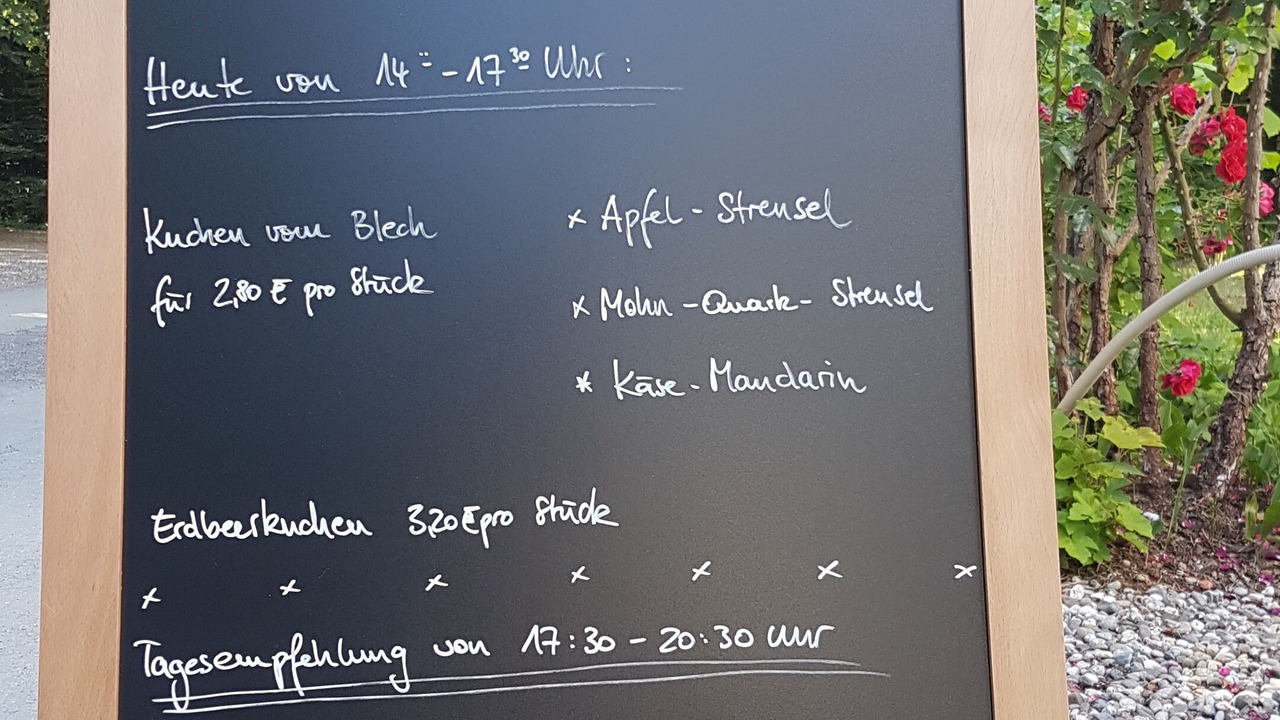 Heute von 14⁰⁰ - 17³⁰ Uhr :
Kuchen vom Blech
für 2,80 € pro Stück
x Apfel - Streusel
x Mohn - Quark - Streusel
* Käse - Mandarin
Erdbeerkuchen 3,20 € pro Stück
x x x x x x x
Tagesempfehlung von 17:30 - 20:30 Uhr